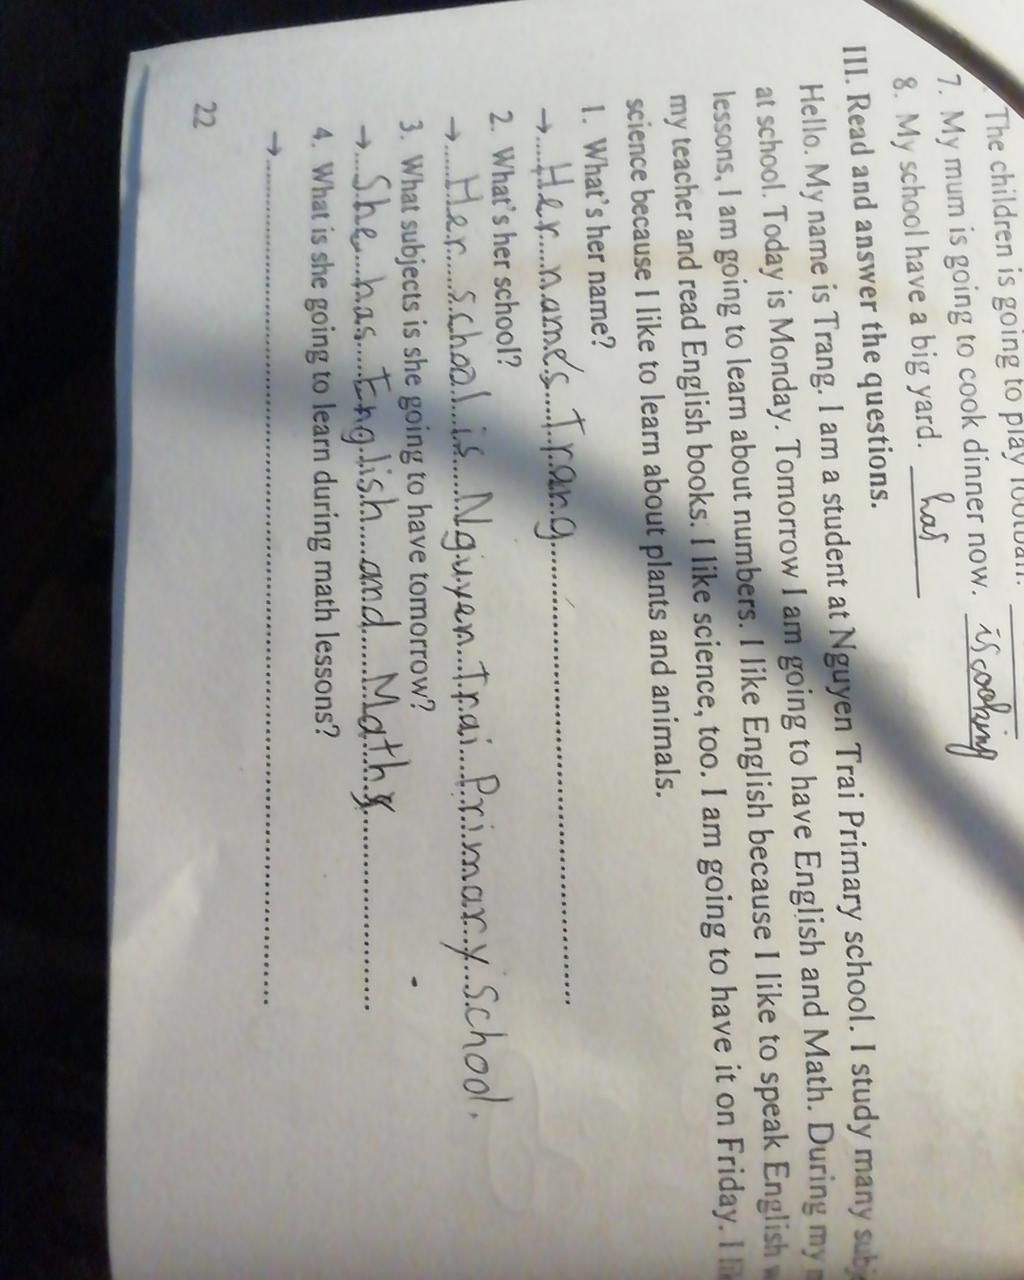 The children is going to play football.
7. My mum is going to cook dinner now. is cooking
8. My school have a big yard. has
III. Read and answer the questions.
Hello. My name is Trang. I am a student at Nguyen Trai Primary school. I study many
at school. Today is Monday. Tomorrow I am going to have English and Math. During my
lessons, I am going to learn about numbers. I like English because I like to speak English
my teacher and read English books. I like science, too. I am going to have it on Friday. I
science because I like to learn about plants and animals.
1. What's her name?
→ Her name's Trang
2. What's her school?
→ Her school is Nguyen Trai Primary School.
3. What subjects is she going to have tomorrow?
→ She has English and Math
4. What is she going to learn during math lessons?
→
22